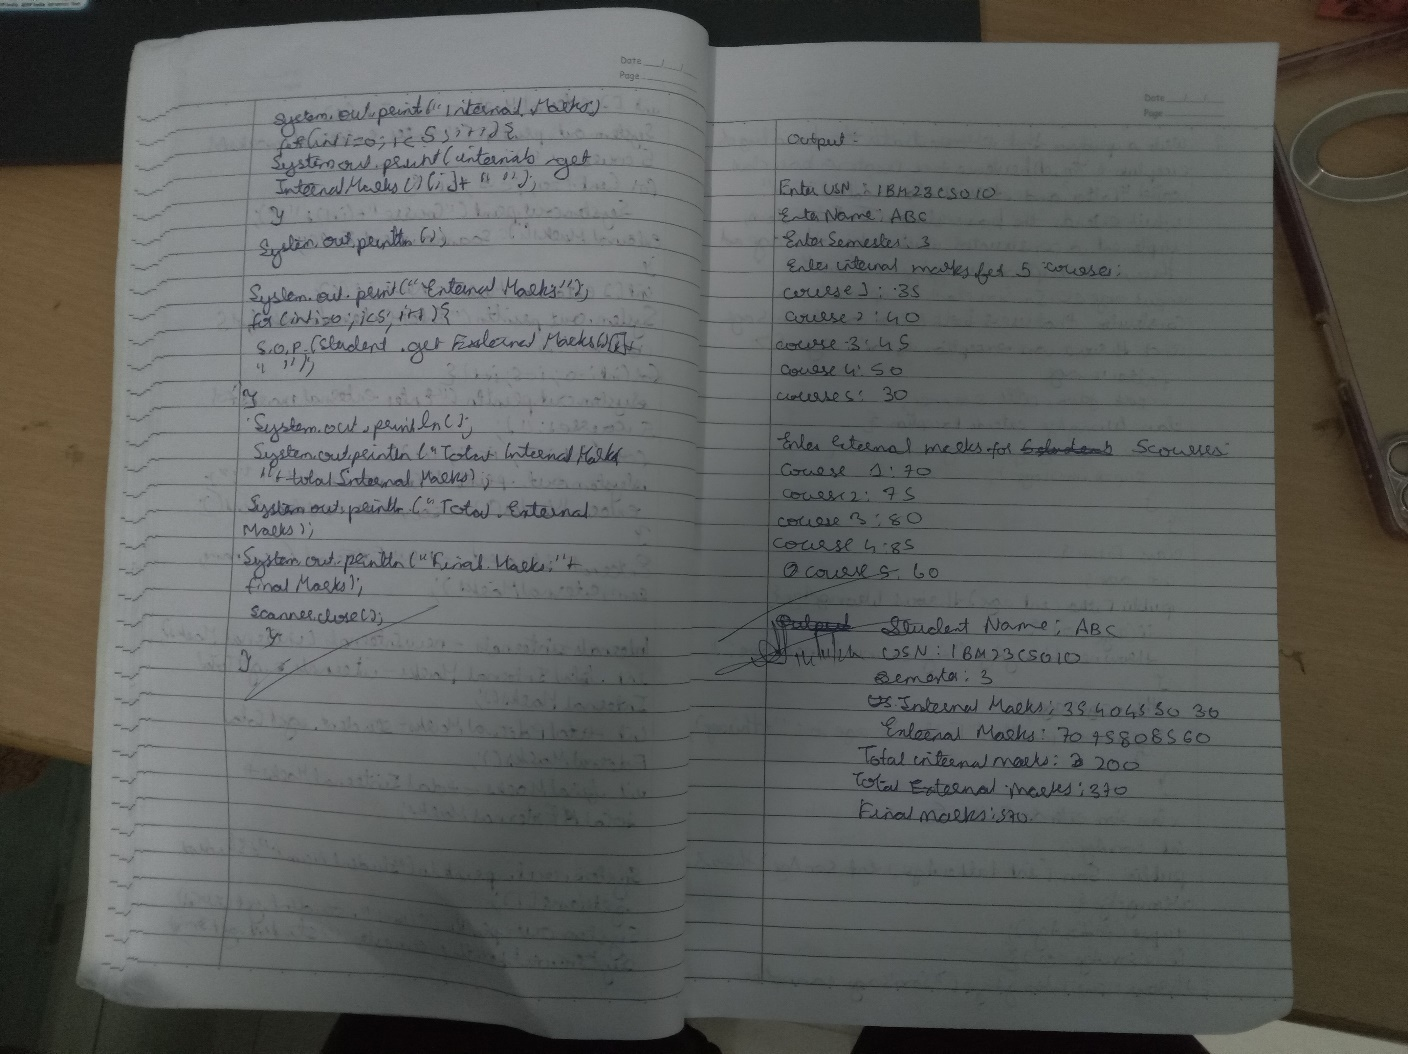 Date
Page
System.out.print("Internal Marks)
for(int i=0; i<5; i++) {
System.out.print(internals.get
InternalMarks()[i]+ " ");
}
System.out.println();
System.out.print("External Marks");
for(int i=0; i<5; i++){
S.O.P.(student.get External Marks()[i]+
" ");
}
System.out.println();
System.out.println("Total Internal Marks
"+ total Internal Marks);
System.out.println("Total External
Marks);
System.out.println("Final Marks:"+
final Marks);
scanner.close();
}
}
Date
Page
Output:
Enter USN: 1BM23CS010
Enter Name: ABC
Enter Semester: 3
Enter internal marks for 5 courses:
course 1: 35
course 2: 40
course 3: 45
course 4: 50
course 5: 30
Enter External marks for 5 courses:
Course 1: 70
course 2: 75
course 3: 80
course 4: 85
course 5: 60
Student Name: ABC
USN: 1BM23CS010
Semester: 3
Internal Marks: 35 40 45 50 30
External Marks: 70 75 80 85 60
Total internal marks: 200
Total External marks: 370
Final marks: 570